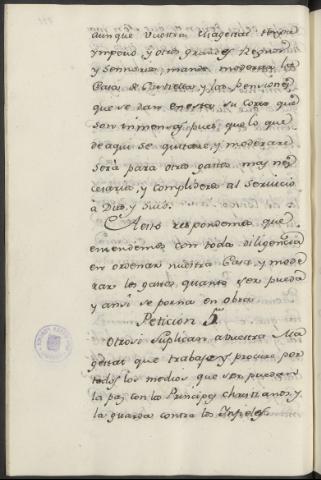 aunque Vuestra Magestad tenga
ymperio, y otros grandes Reynos
y Señorios, mande moderar la
Casa de Castilla, y las pensiones
que se dan en esta su Corte que
son inmensas, pues que lo que
de aqui se quitare, y moderare
será para otros gastos mas ne
cesarios, y complideros al servicio
à Dios, y suio.
A esto respondemos que
entendemos con toda diligencia
en ordenar nuestra Casa, y mode
rar los gastos, quanto ser pueda
y ansi se porna en obra.
Peticion 5.
Otrosi suplican a vuestra Ma
gestad que trabaje, y procure por
todos los medios que ser pueda
la paz con los Principes christianos, y
la guerra contra los Infieles.